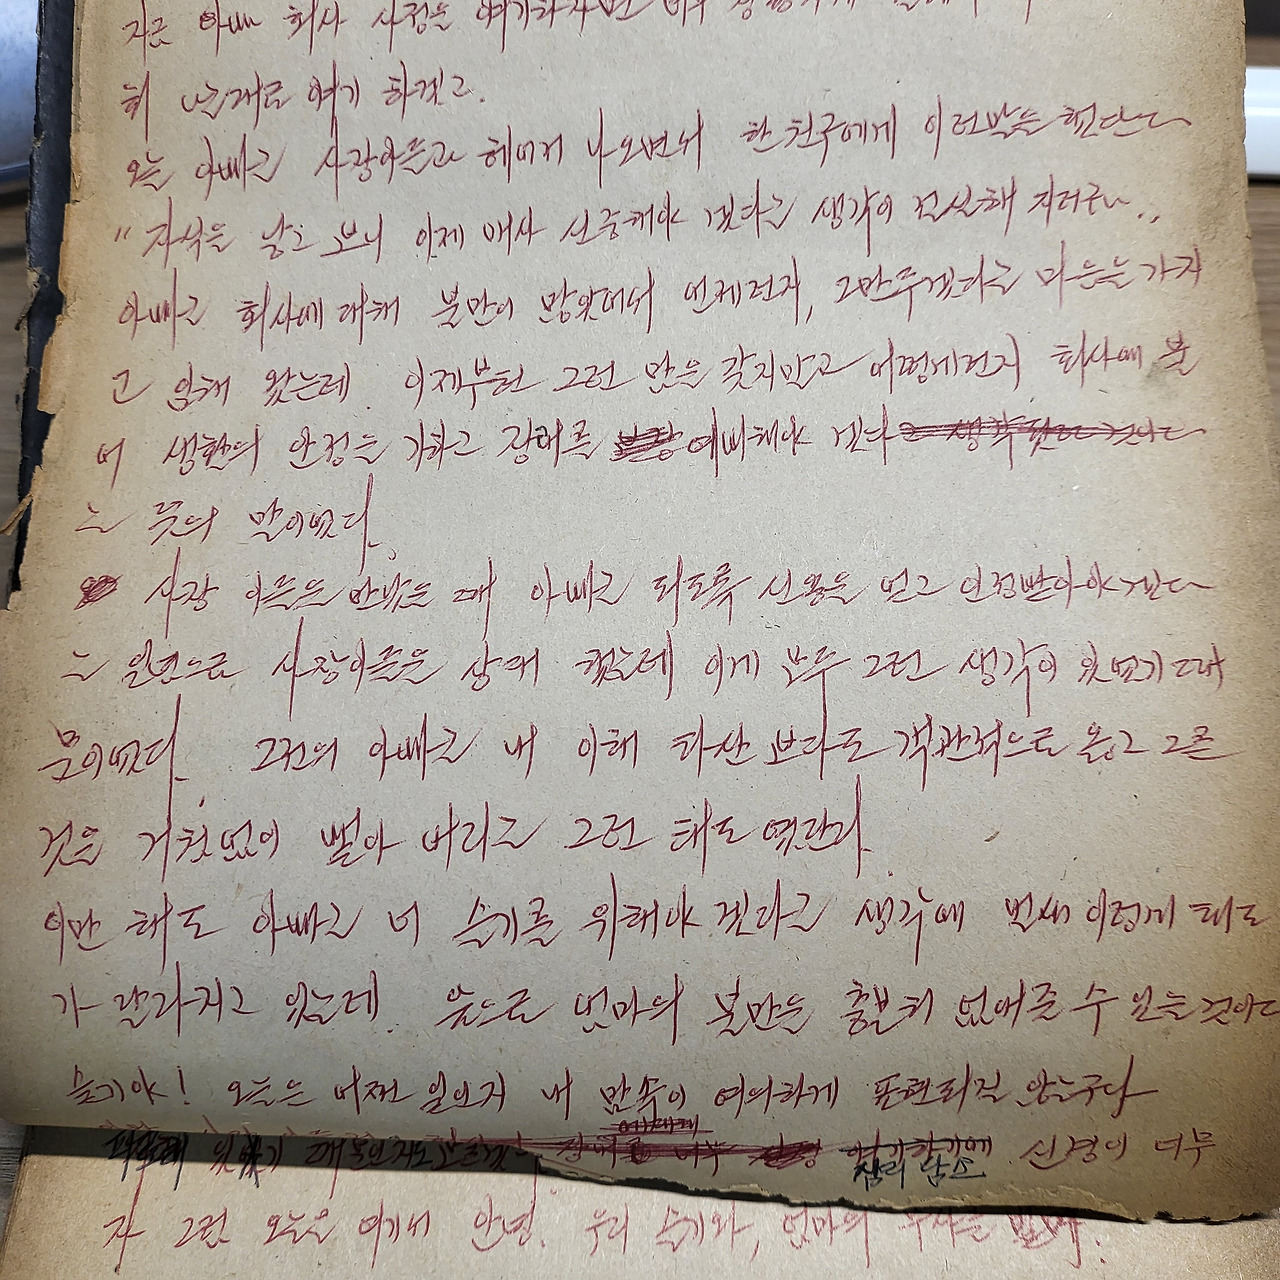 지금 아빠 회사 사정을 얘기하자면 너무
히 나눈대로 얘기 하겠고.
오늘 아빠는 사장아들과 헤어져 나오면서 한 친구에게 이런말을 했단다
"자식을 낳고 보니 이제 매사 신중해야 겠다는 생각이 전신해 지더군..
아빠는 회사에 대해 불만이 많았어서 언제던지, 그만두겠다는 마음을 가지
고 임해 왔는데 이제부턴 그런 맘을 갖지말고 어떻게던지 회사에 붙
어 생활의 안정을 기하고 장래를 예비해야 겠다
는 뜻의 말이였다.
사장 아들을 만났을 때 아빠는 되도록 신용을 얻고 인정받아야 겠다
는 일념으로 사장아들을 상대 했는데 이게 모두 그런 생각이 있었기 때
문이였다. 그전의 아빠는 내 이해 타산 보다도 객관적으로 옳고 그른
것을 거침없이 뱉아 버리는 그런 태도 였단다.
이만 해도 아빠는 너 슬기를 위해야 겠다는 생각에 벌써 이렇게 태도
가 달라지고 있는데. 앞으로 엄마의 불만을 충분히 없애줄 수 있는 것이다
슬기야! 오늘은 어쩐 일인지 내 맘속이 여의하게 표현되질 않는구나
신경이 너무
자 그럼 오늘은 여기서 안녕. 우리 슬기와, 엄마의